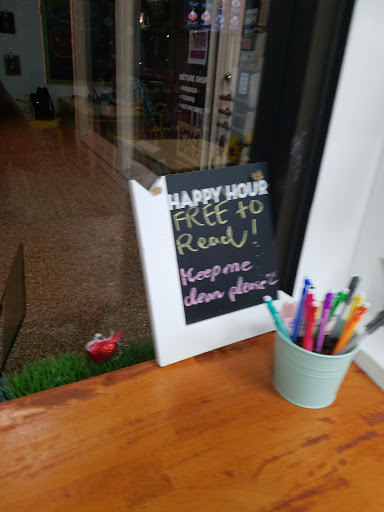 NATURE SHOP
HAPPY HOUR
FREE to
Read!
Keep me
clean please